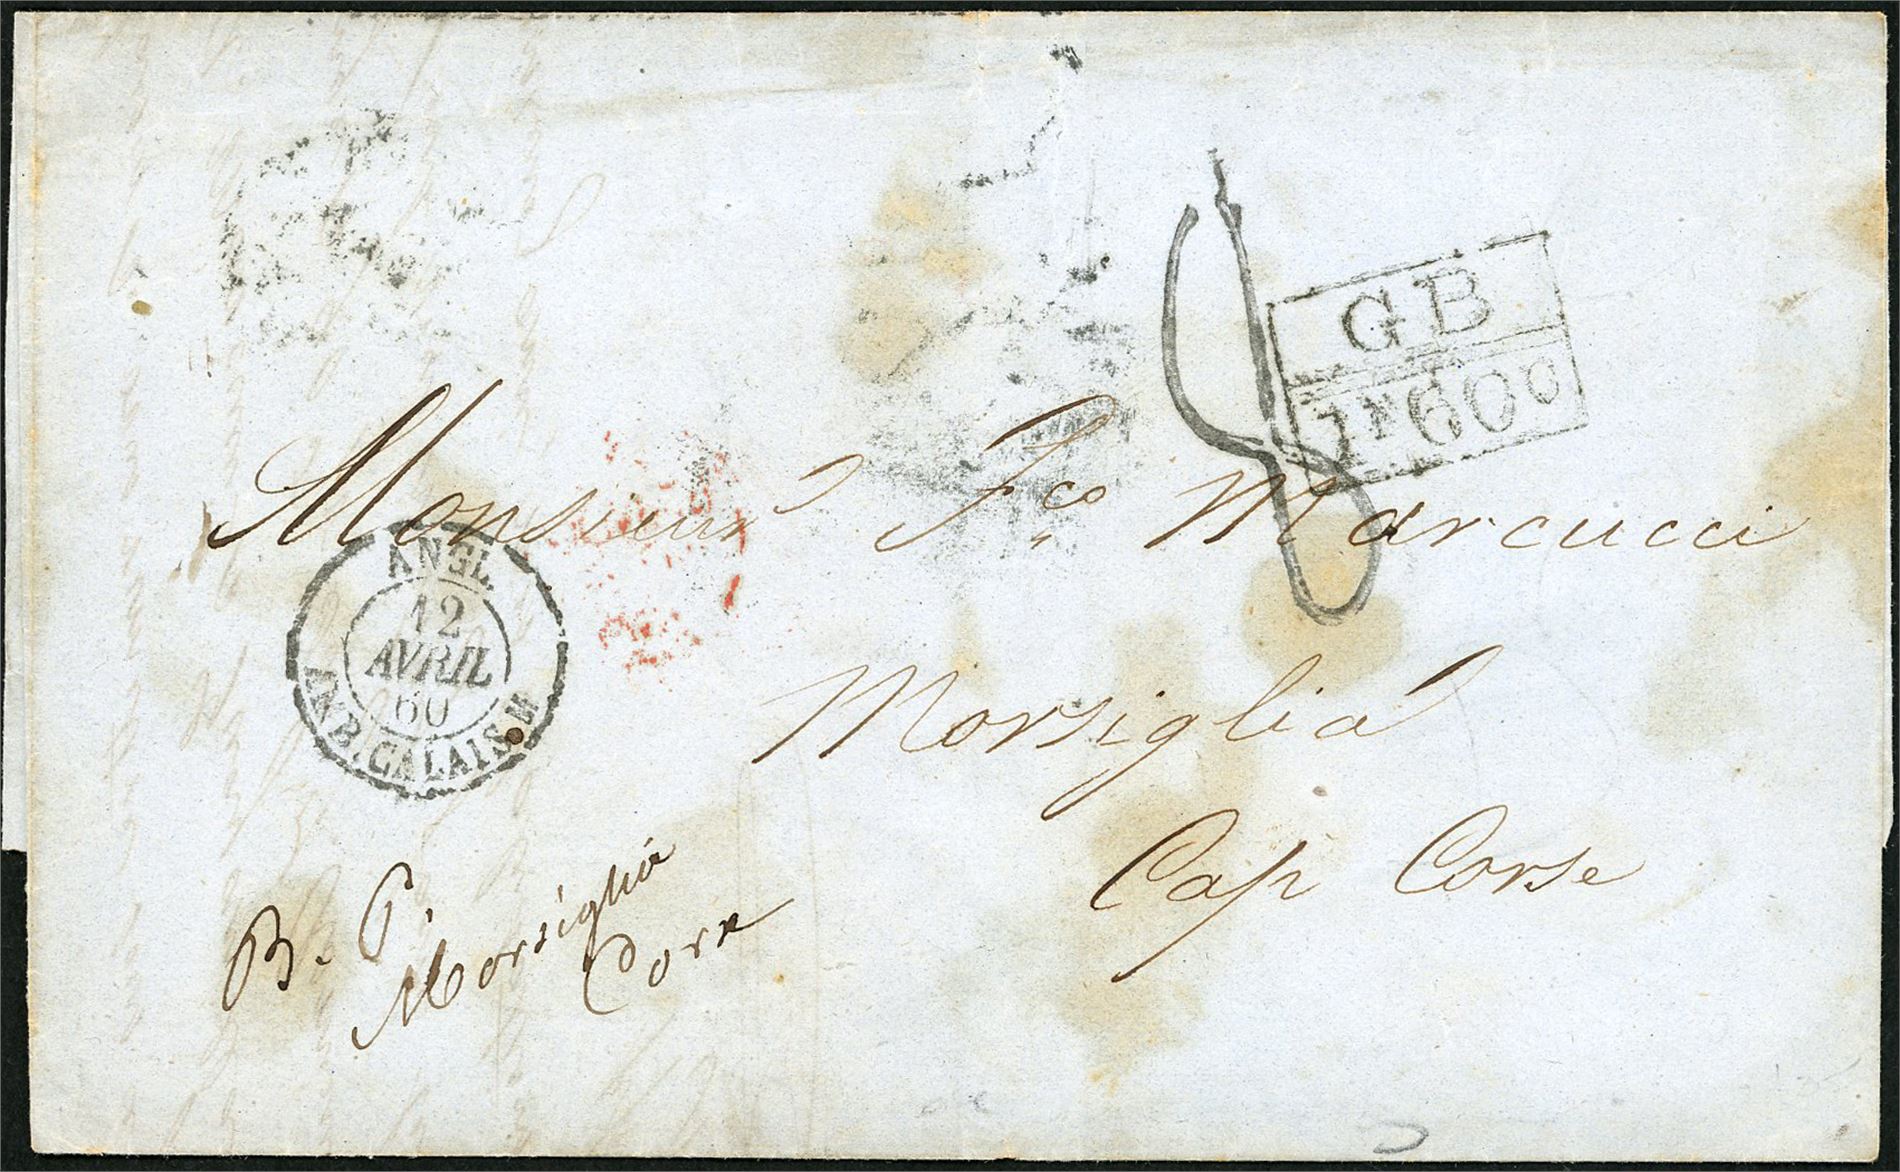 GB
1F60c
8
Monsieur Fco Marcucci
ANGL.
12
AVRIL
60
AMB. CALAIS. H
Morsiglia
Cap Corse
B. P.
Morsiglia
Corse